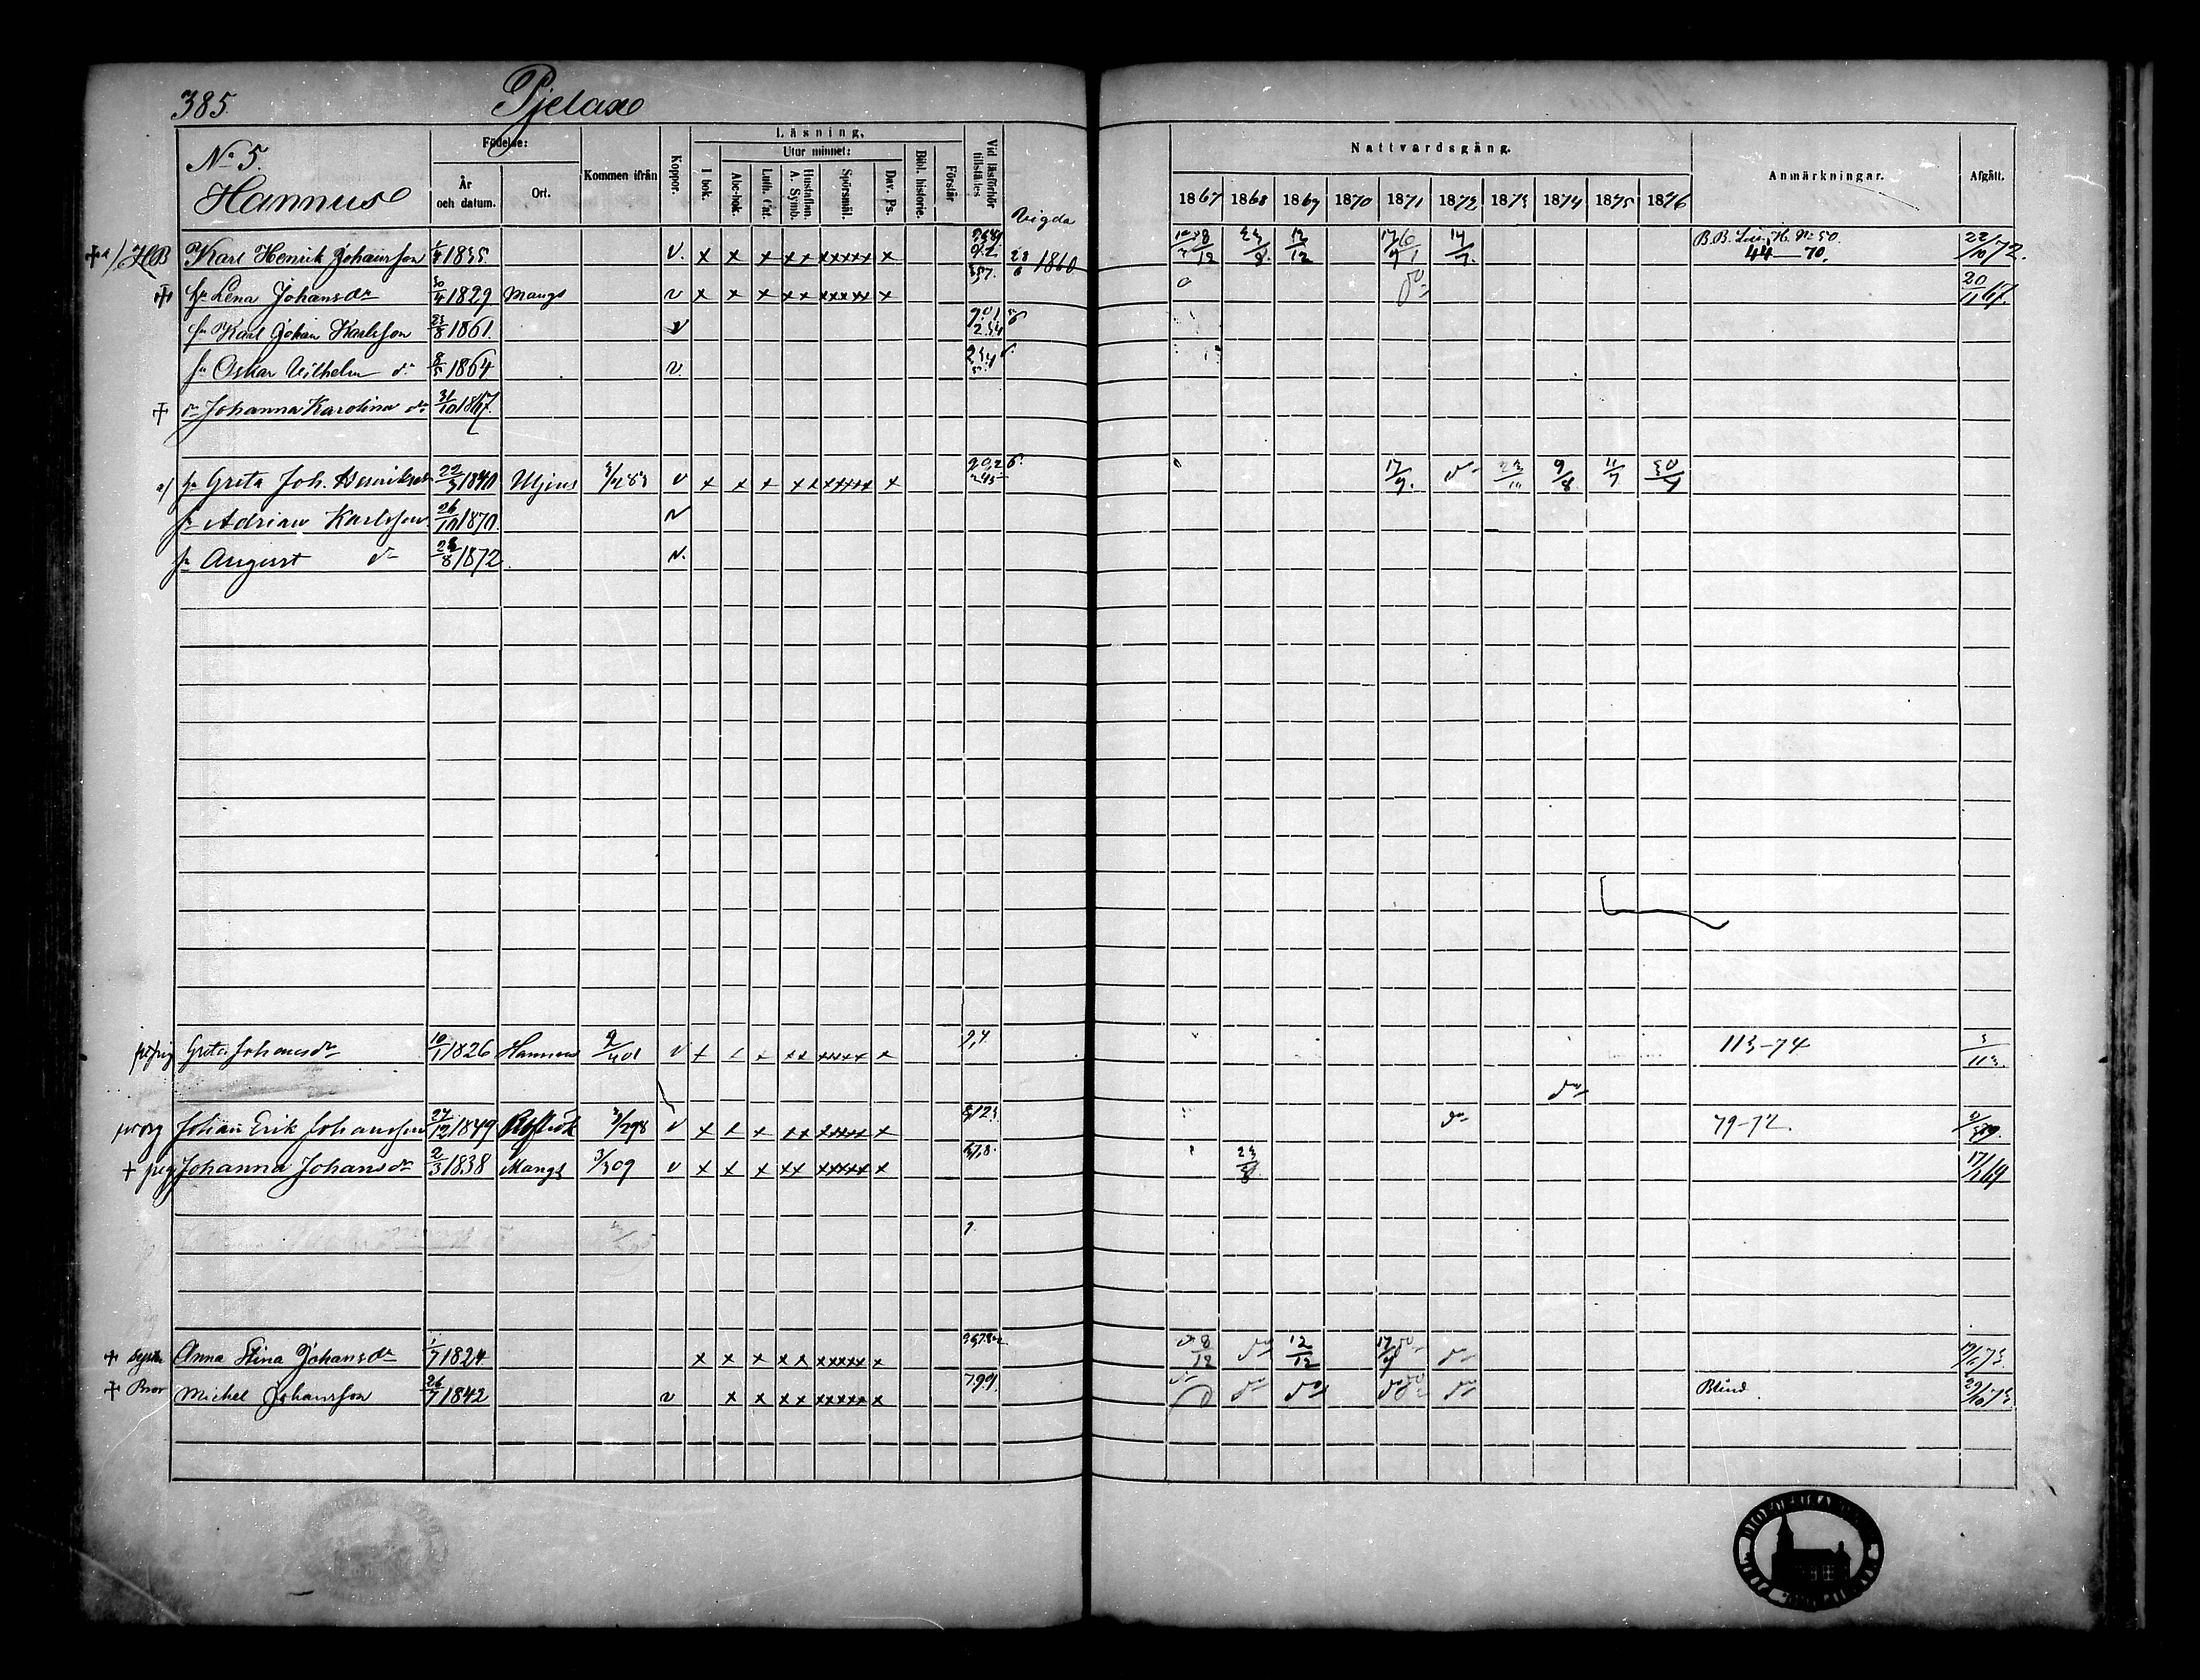 385. Pjelax
No 5.
Hannus
Födelse:
År och datum.
Ort.
Kommen ifrån
Koppor.
Läsning.
I bok.
Utur minnet:
Abc-bok.
Luth. Cat.
Hustaflan. A. Symb.
Spörsmål.
Dav. Ps.
Bibl. historie.
Förstår
Vid läsförhör tillstädes
Vigda
Nattvardsgång.
1867 1868 1869 1870 1871 1872 1873 1874 1875 1876
Anmärkningar.
Afgått.
Karl Henrik Johansson 1835 v. x x x xx xxxxx x 28/6 1860 8/12 23/8 12/12 14/7 44—70. 22/10 72.
hu Lena Johansdr 30/4 1829 Mangs v x x x xx xxxxx x 20/11 67.
sn Karl Johan Karlsson 23/8 1861. v
sn Oskar Vilhelm do 8/5 1864 v.
dr Johanna Karolina do 31/10 1867.
hu Greta Joh. Henriksdr 22/3 1840 v x x x xx xxxxx x 17/9. do 23/10 9/8 11/7 30/7
sn Adrian Karlsson 26/10 1870 v
sn August do 23/8 1872 v.
Greta Johansdr 10/1 1826 Hannus 2/401 v x x x xx xxxxx x 113-74 3/113.
Johan Erik Johansson 27/12 1849 3/298 v x x x xx xxxxx x do 79-72.
+ pig Johanna Johansdr 2/3 1838 Mangs 3/309 v x x x xx xxxxx x 23/8 17/1 69
+ Syster Anna Stina Johansdr 1/7 1824 x x x xx xxxxx x 8/12 do 12/12 17/9 do
+ Bror Michel Johansson 26/7 1842 v x x xx xxxxx x do do do do Blind. 29/10 73